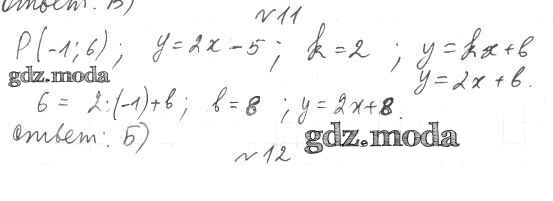 Ответ: В)
№11
P(-1; 6); y=2x-5; k=2; y=kx+b
gdz.moda
y=2x+b.
6= 2·(-1)+b; b=8; y=2x+8.
Ответ: Б)
gdz.moda
№12